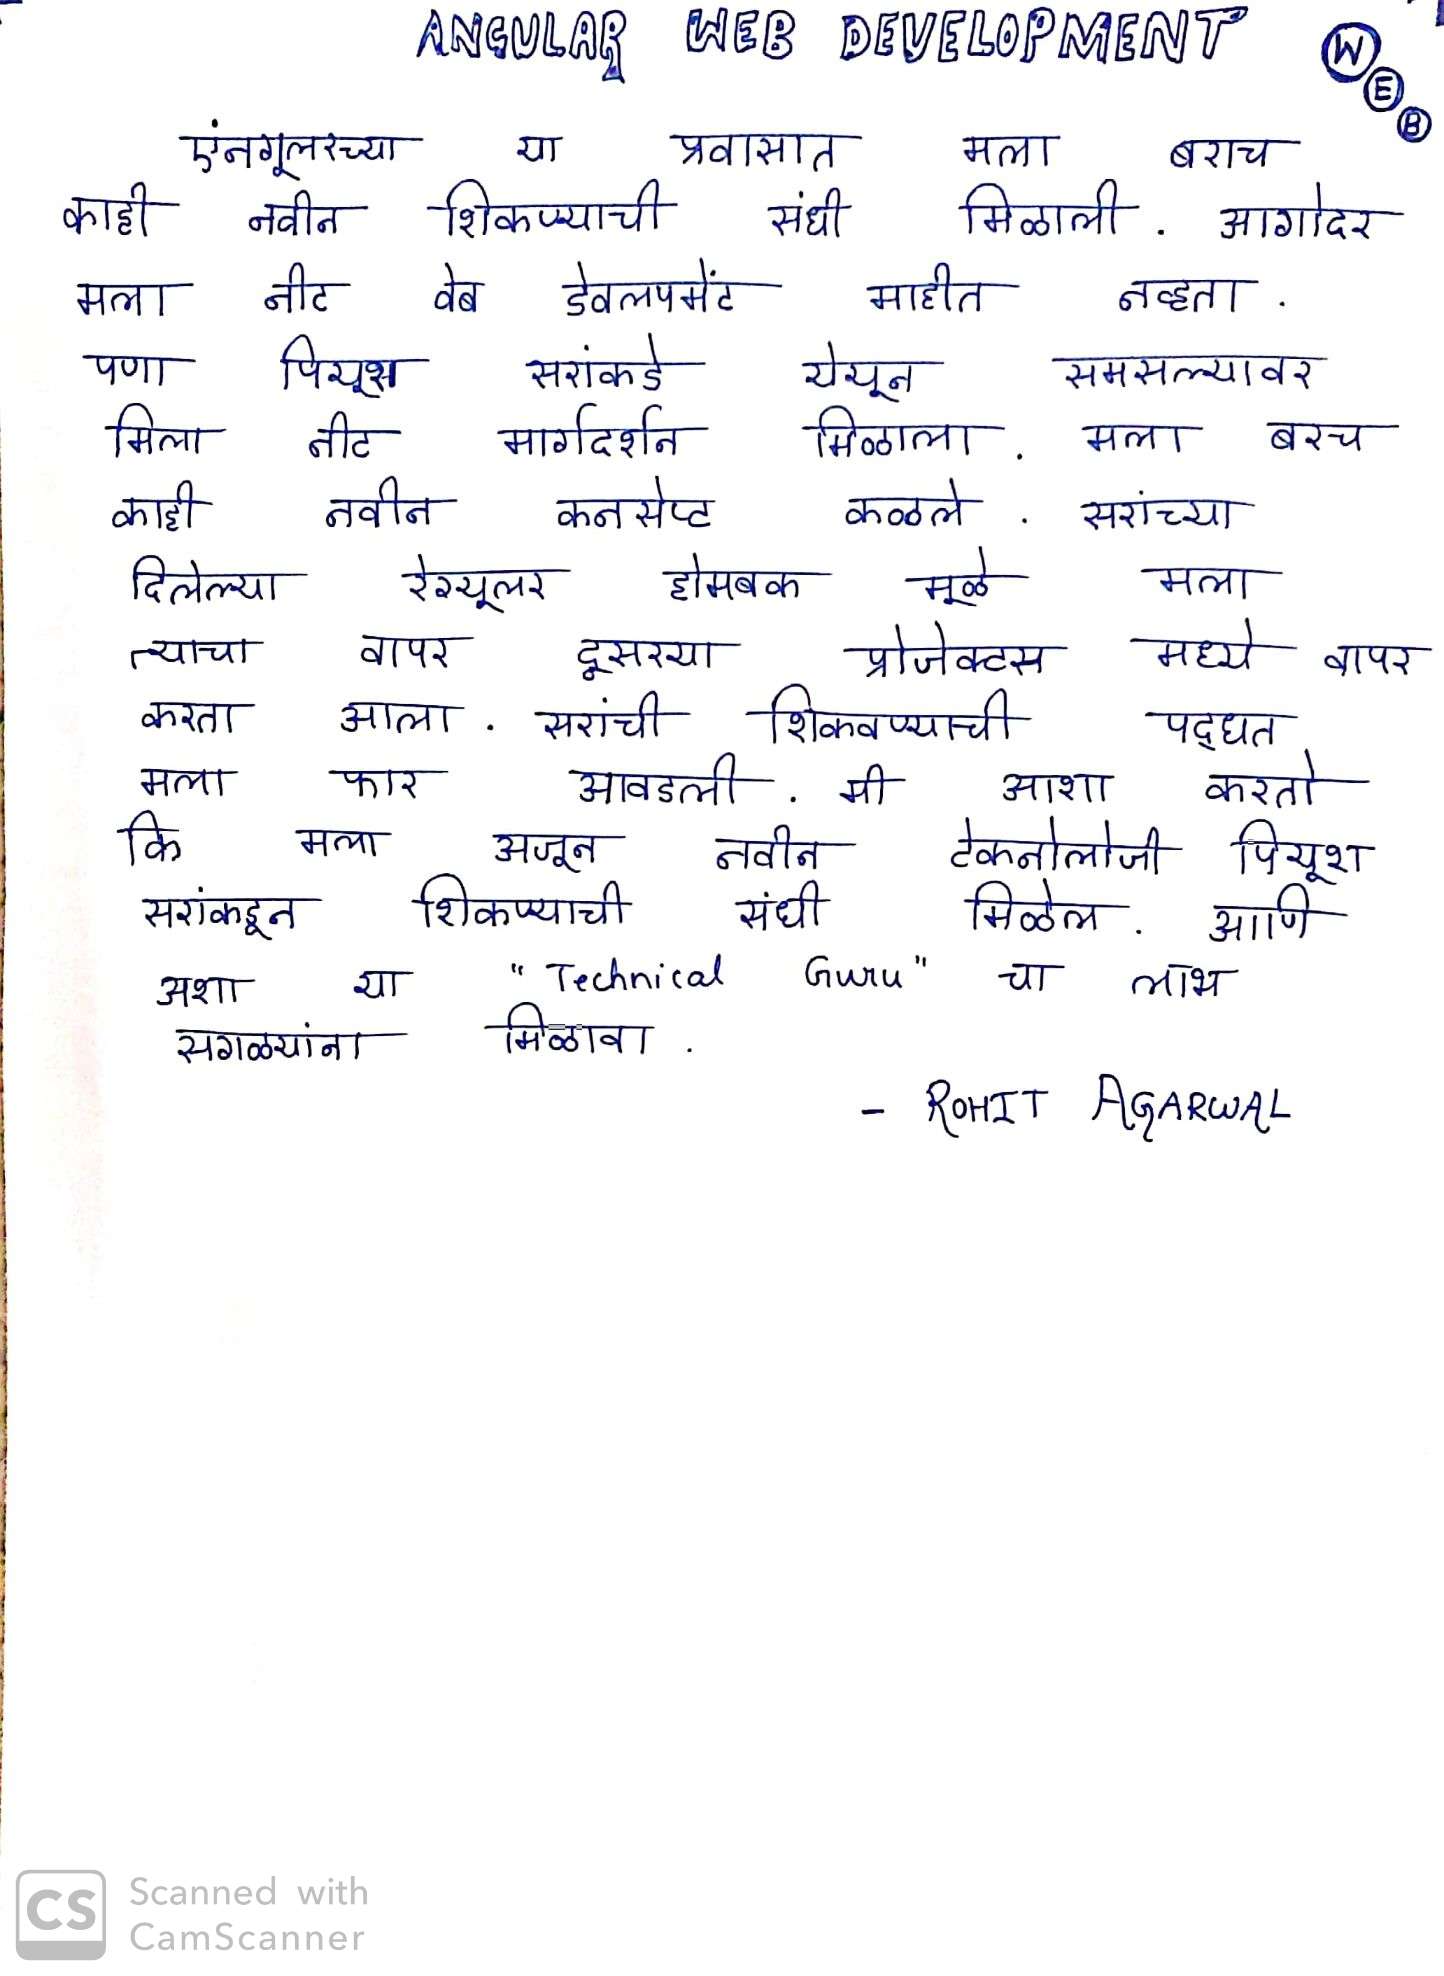 ANGULAR WEB DEVELOPMENT WEB
एंनगूलरच्या या प्रवासात मला बराच
काही नवीन शिकण्याची संधी मिळाली. आगोदर
मला नीट वेब डेवलपमेंट माहीत नव्हता.
पणा पियूष सरांकडे येयून समसल्यावर
मिला नीट मार्गदर्शन मिळाला. मला बरच
काही नवीन कनसेप्ट कळले. सरांच्या
दिलेल्या रेग्यूलर होमबक मूळे मला
त्याचा वापर दूसरया प्रोजेक्टस मध्ये वापर
करता आला. सरांची शिकवण्याची पद्धत
मला फार आवडली. मी आशा करतो
कि मला अजून नवीन टेकनोलोजी पियूश
सरांकडून शिकण्याची संधी मिळेल. आणि
अशा या "Technical Guru" चा लाभ
सगळयांना मिळावा.
- ROHIT AGARWAL
CS Scanned with
CamScanner